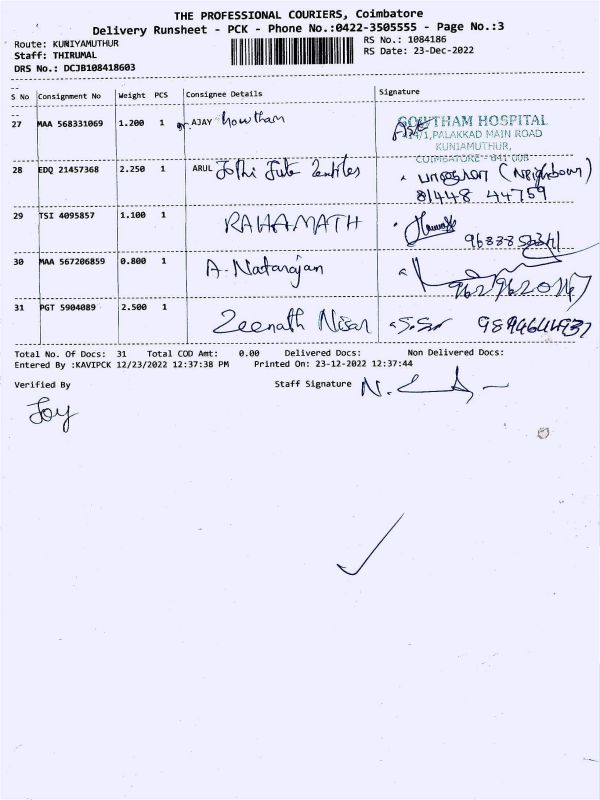 THE PROFESSIONAL COURIERS, Coimbatore
Delivery Runsheet - PCK - Phone No.:0422-3505555 - Page No.:3
Route: KUNIYAMUTHUR
RS No.: 1084186
Staff: THIRUMAL
RS Date: 23-Dec-2022
DRS No.: DCJB108418603
S No Consignment No Weight PCS Consignee Details Signature
27 MAA 568331069 1.200 1 AJAY Gowtham
GOWTHAM HOSPITAL
PALAKKAD MAIN ROAD
KUNIAMUTHUR,
COIMBATORE - 641 008
28 EDQ 21457368 2.250 1 ARUL Jothi Jute Textiles (Neighbour)
81448 44759
29 TSI 4095857 1.100 1 RAHAMATH
30 MAA 567206859 0.800 1 A. Natarajan
31 PGT 5904089 2.500 1 Zeenath Nisar
Total No. Of Docs: 31 Total COD Amt: 0.00 Delivered Docs: Non Delivered Docs:
Entered By :KAVIPCK 12/23/2022 12:37:38 PM Printed On: 23-12-2022 12:37:44
Verified By Staff Signature
Joy